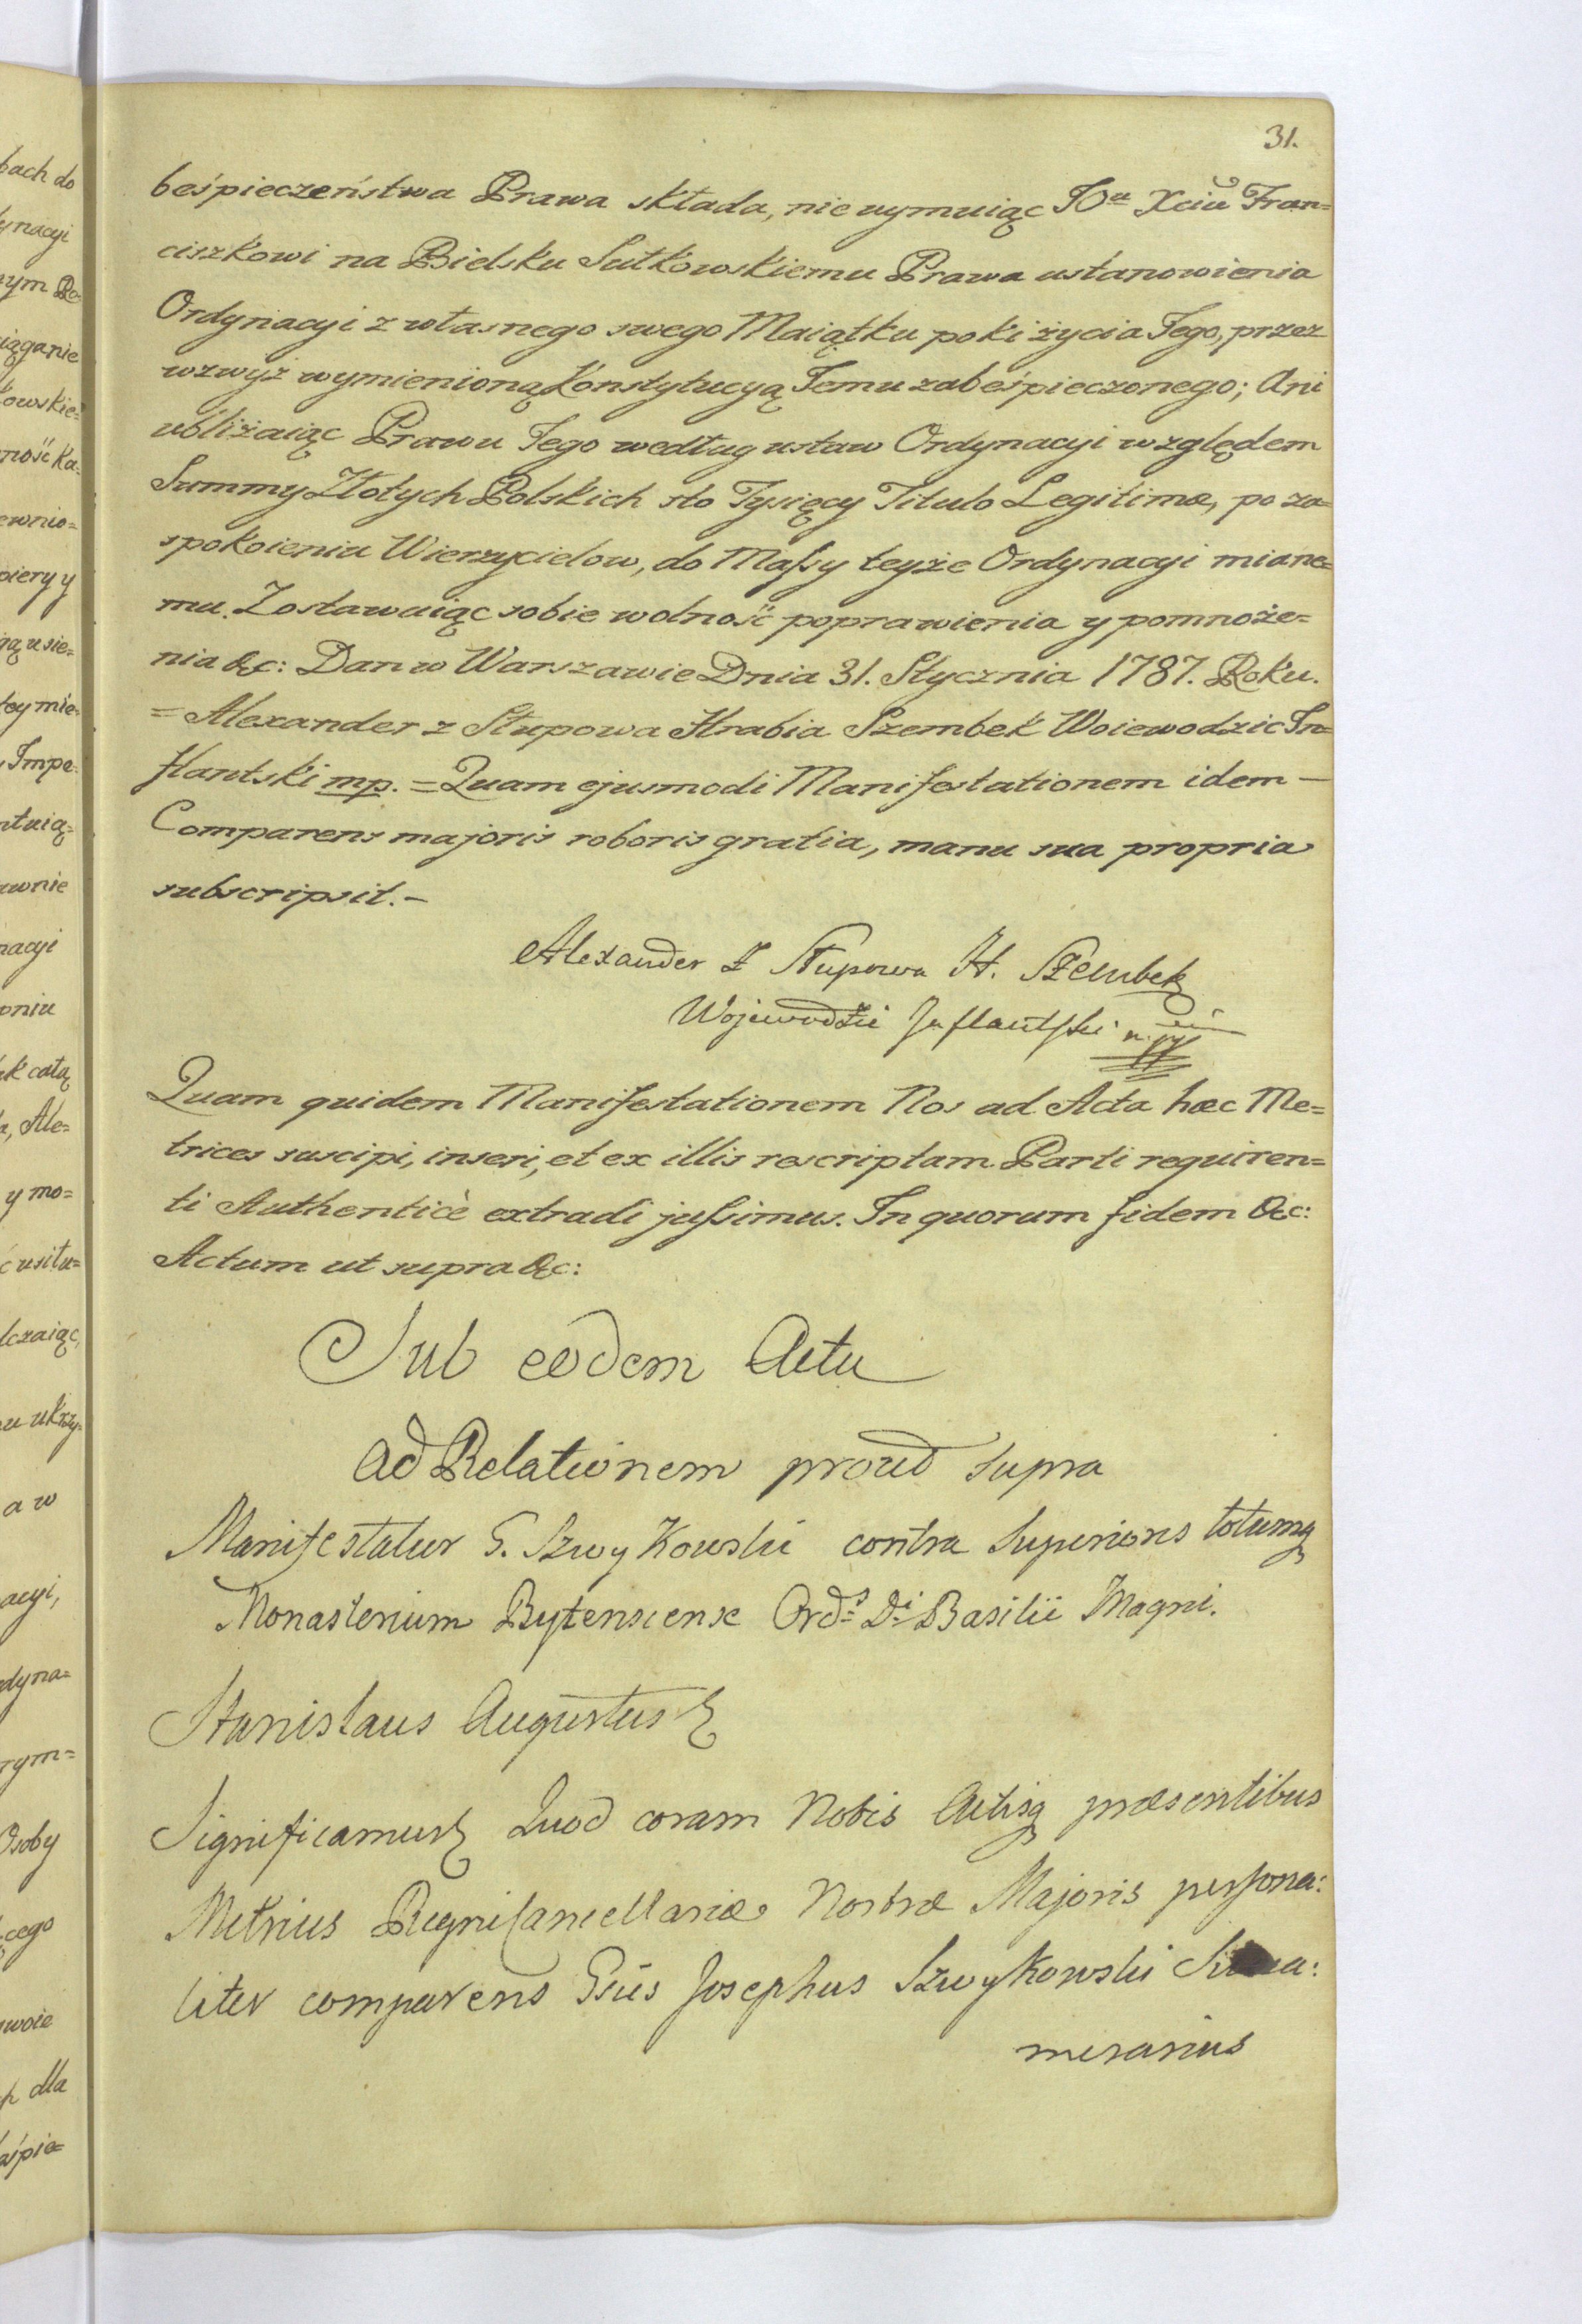 31.
beśpieczeństwa Prawa składa, nie uymuiąc JOu Xciu Fran=
ciszkowi na Bielsku Sułkowskiemu Prawa ustanowienia
Ordynacyi z własnego swego Maiątku poki życia Jego, przez
wzwyż wymienioną Konstytucyą Jemu zabeśpieczonego; Ani
ubliżaiąc Prawu Jego według ustaw Ordynacyi względem
Summy Złotych Polskich sto Tysięcy Titulo Legitimæ, po za=
spokoieniu Wierzycielow, do Maſsy teyże Ordynacyi miane=
mu. Zostawuiąc sobie wolność poprawienia y pomnoże=
nia &c: Dan w Warszawie Dnia 31. Stycznia 1787. Roku.
= Alexander z Słupowa Hrabia Szembek Woiewodzic In=
flantski mp. = Quam ejusmodi Manifestationem idem —
Comparens majoris roboris gratia, manu sua propria
subscripsit. –
Alexander Z Słupowa H. Szembek
Wojewodzic Inflantski
Quam quidem Manifestationem Nos ad Acta hæc Me=
trices suscipi, inseri, et ex illis rescriptam Parti requiren=
ti Authenticè extradi juſsimus. In quorum fidem &c:
Actum ut supra &c:
Sub eodem Actu
Ad Relationem proud supra
Manifestatur G. Szwykowski contra Superiores totumq
Monasterium Bytensiense Ords Di Basilii Magni.
Stanislaus Augustus
Significamus Quod coram Nobis Actisq præsentibus
Metrices Regni Cancellariæ Nostræ Majoris perſona:
liter comparens Gsus Josephus Szwykowski
merarius